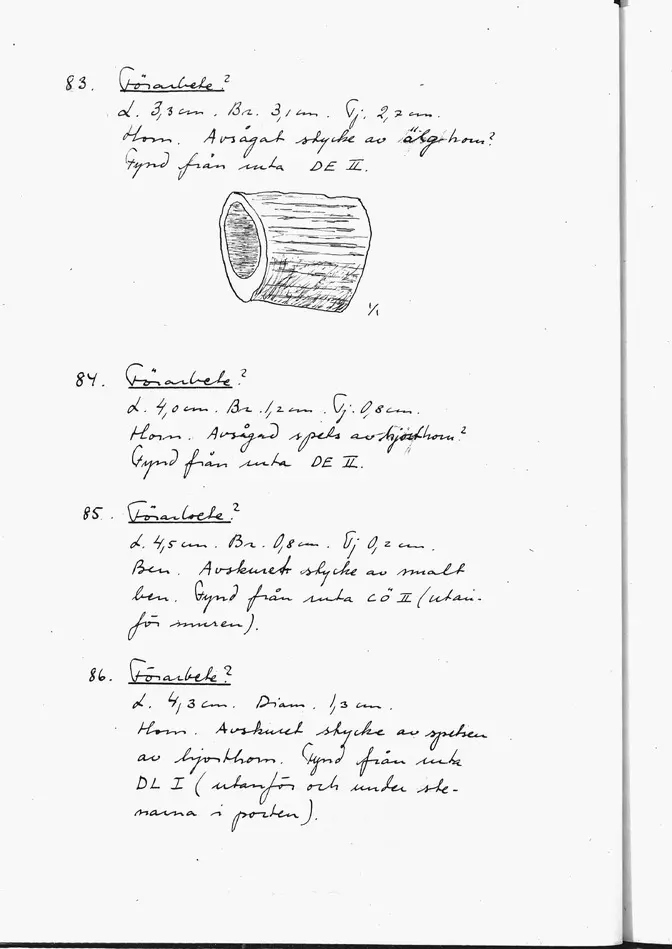 83. Förarbete?
L. 3,3 cm. Br. 3,1 cm. Tj. 2,2 cm.
Horn. Avsågat stycke av älghorn?
Fynd från ruta DE II.
1/1
84. Förarbete?
L. 4,0 cm. Br. 1,2 cm. Tj. 0,8 cm.
Horn. Avsågad spets av hjorthorn?
Fynd från ruta DE II.
85. Förarbete?
L. 4,5 cm. Br. 0,8 cm. Tj 0,2 cm.
Ben. Avskuret stycke av smalt
ben. Fynd från ruta CÖ II (utan-
för muren).
86. Förarbete?
L. 4,3 cm. Diam. 1,3 cm.
Horn. Avskuret stycke av spetsen
av hjorthorn. Fynd från ruta
DL I (utanför och under ste-
narna i porten).